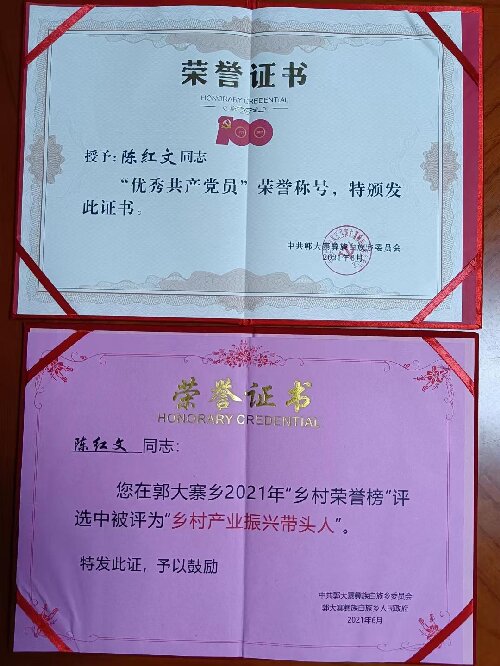 荣誉证书
HONORARY CREDENTIAL
100
授予:陈红文同志
“优秀共产党员”荣誉称号，特颁发
此证书。
中共郭大寨彝族白族乡委员会
2021年6月
荣誉证书
HONORARY CREDENTIAL
陈红文 同志：
您在郭大寨乡2021年“乡村荣誉榜”评
选中被评为“乡村产业振兴带头人”。
特发此证，予以鼓励
中共郭大寨彝族白族乡委员会
郭大寨彝族白族乡人民政府
2021年6月